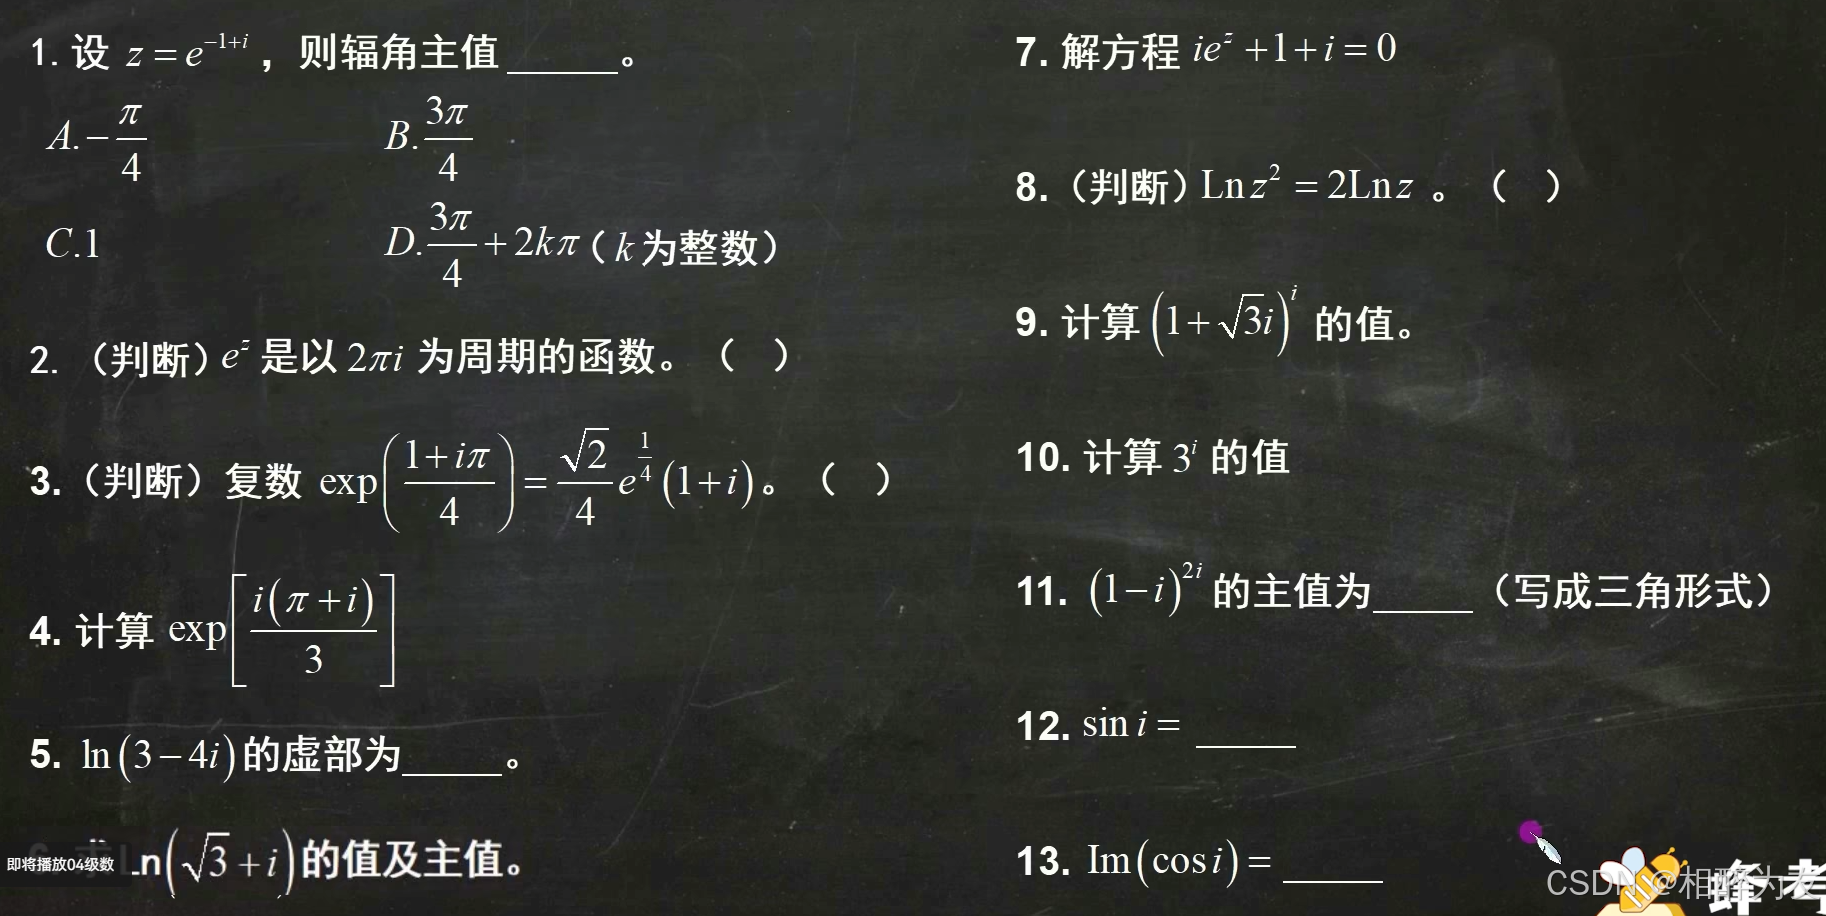 1. 设 z = e^{-1+i}，则辐角主值_____。
A. -π/4 B. 3π/4
C. 1 D. 3π/4 + 2kπ（k 为整数）
2. （判断）e^z 是以 2πi 为周期的函数。（ ）
3.（判断）复数 exp((1+iπ)/4) = √2/4 e^{1/4} (1+i)。（ ）
4. 计算 exp[i(π+i)/3]
5. ln(3-4i) 的虚部为_____。
n(√3+i) 的值及主值。
即将播放04级数
7. 解方程 ie^z +1+i = 0
8.（判断）Ln z² = 2Ln z 。（ ）
9. 计算 (1+√3i)^i 的值。
10. 计算 3^i 的值
11. (1-i)^{2i} 的主值为_____（写成三角形式）
12. sin i = _____
13. Im(cos i) = _____
CSDN @相
蜂考